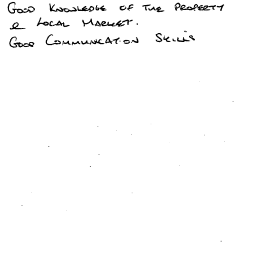 Good Knowledge of the Property
& Local Market.
Good Communication Skills